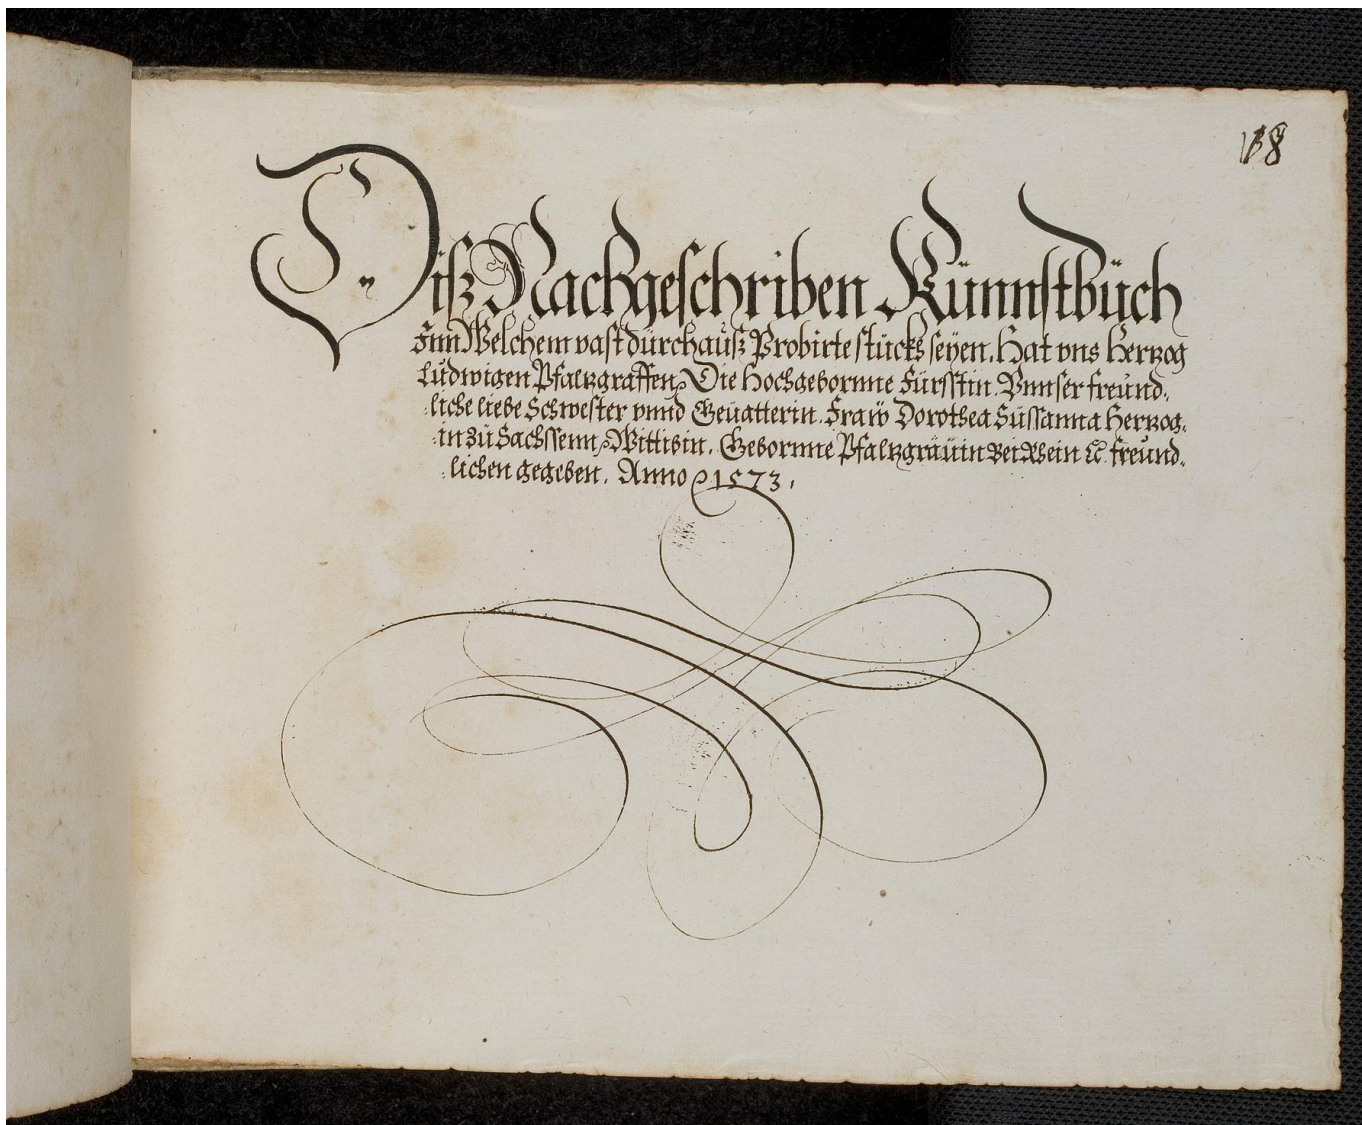 Diß Nachgeschriben Künnstbüch
Inn Welchem vast dürchaüß Probirte stückh seÿen. Hat vns Hertzog
Lüdwigen Pfaltzgraffen, Die Hochgebornne Fürsstin. Vnnser freünd-
liche liebe Schwester vnnd Geüatterin. Fraw Dorothea Süssanna Hertzog-
in Zü Sachssenn, Wittibin. Gebornne Pfaltzgräüin Bei Rhein ꝛc freünd-
lichen gegeben. Anno 1573.